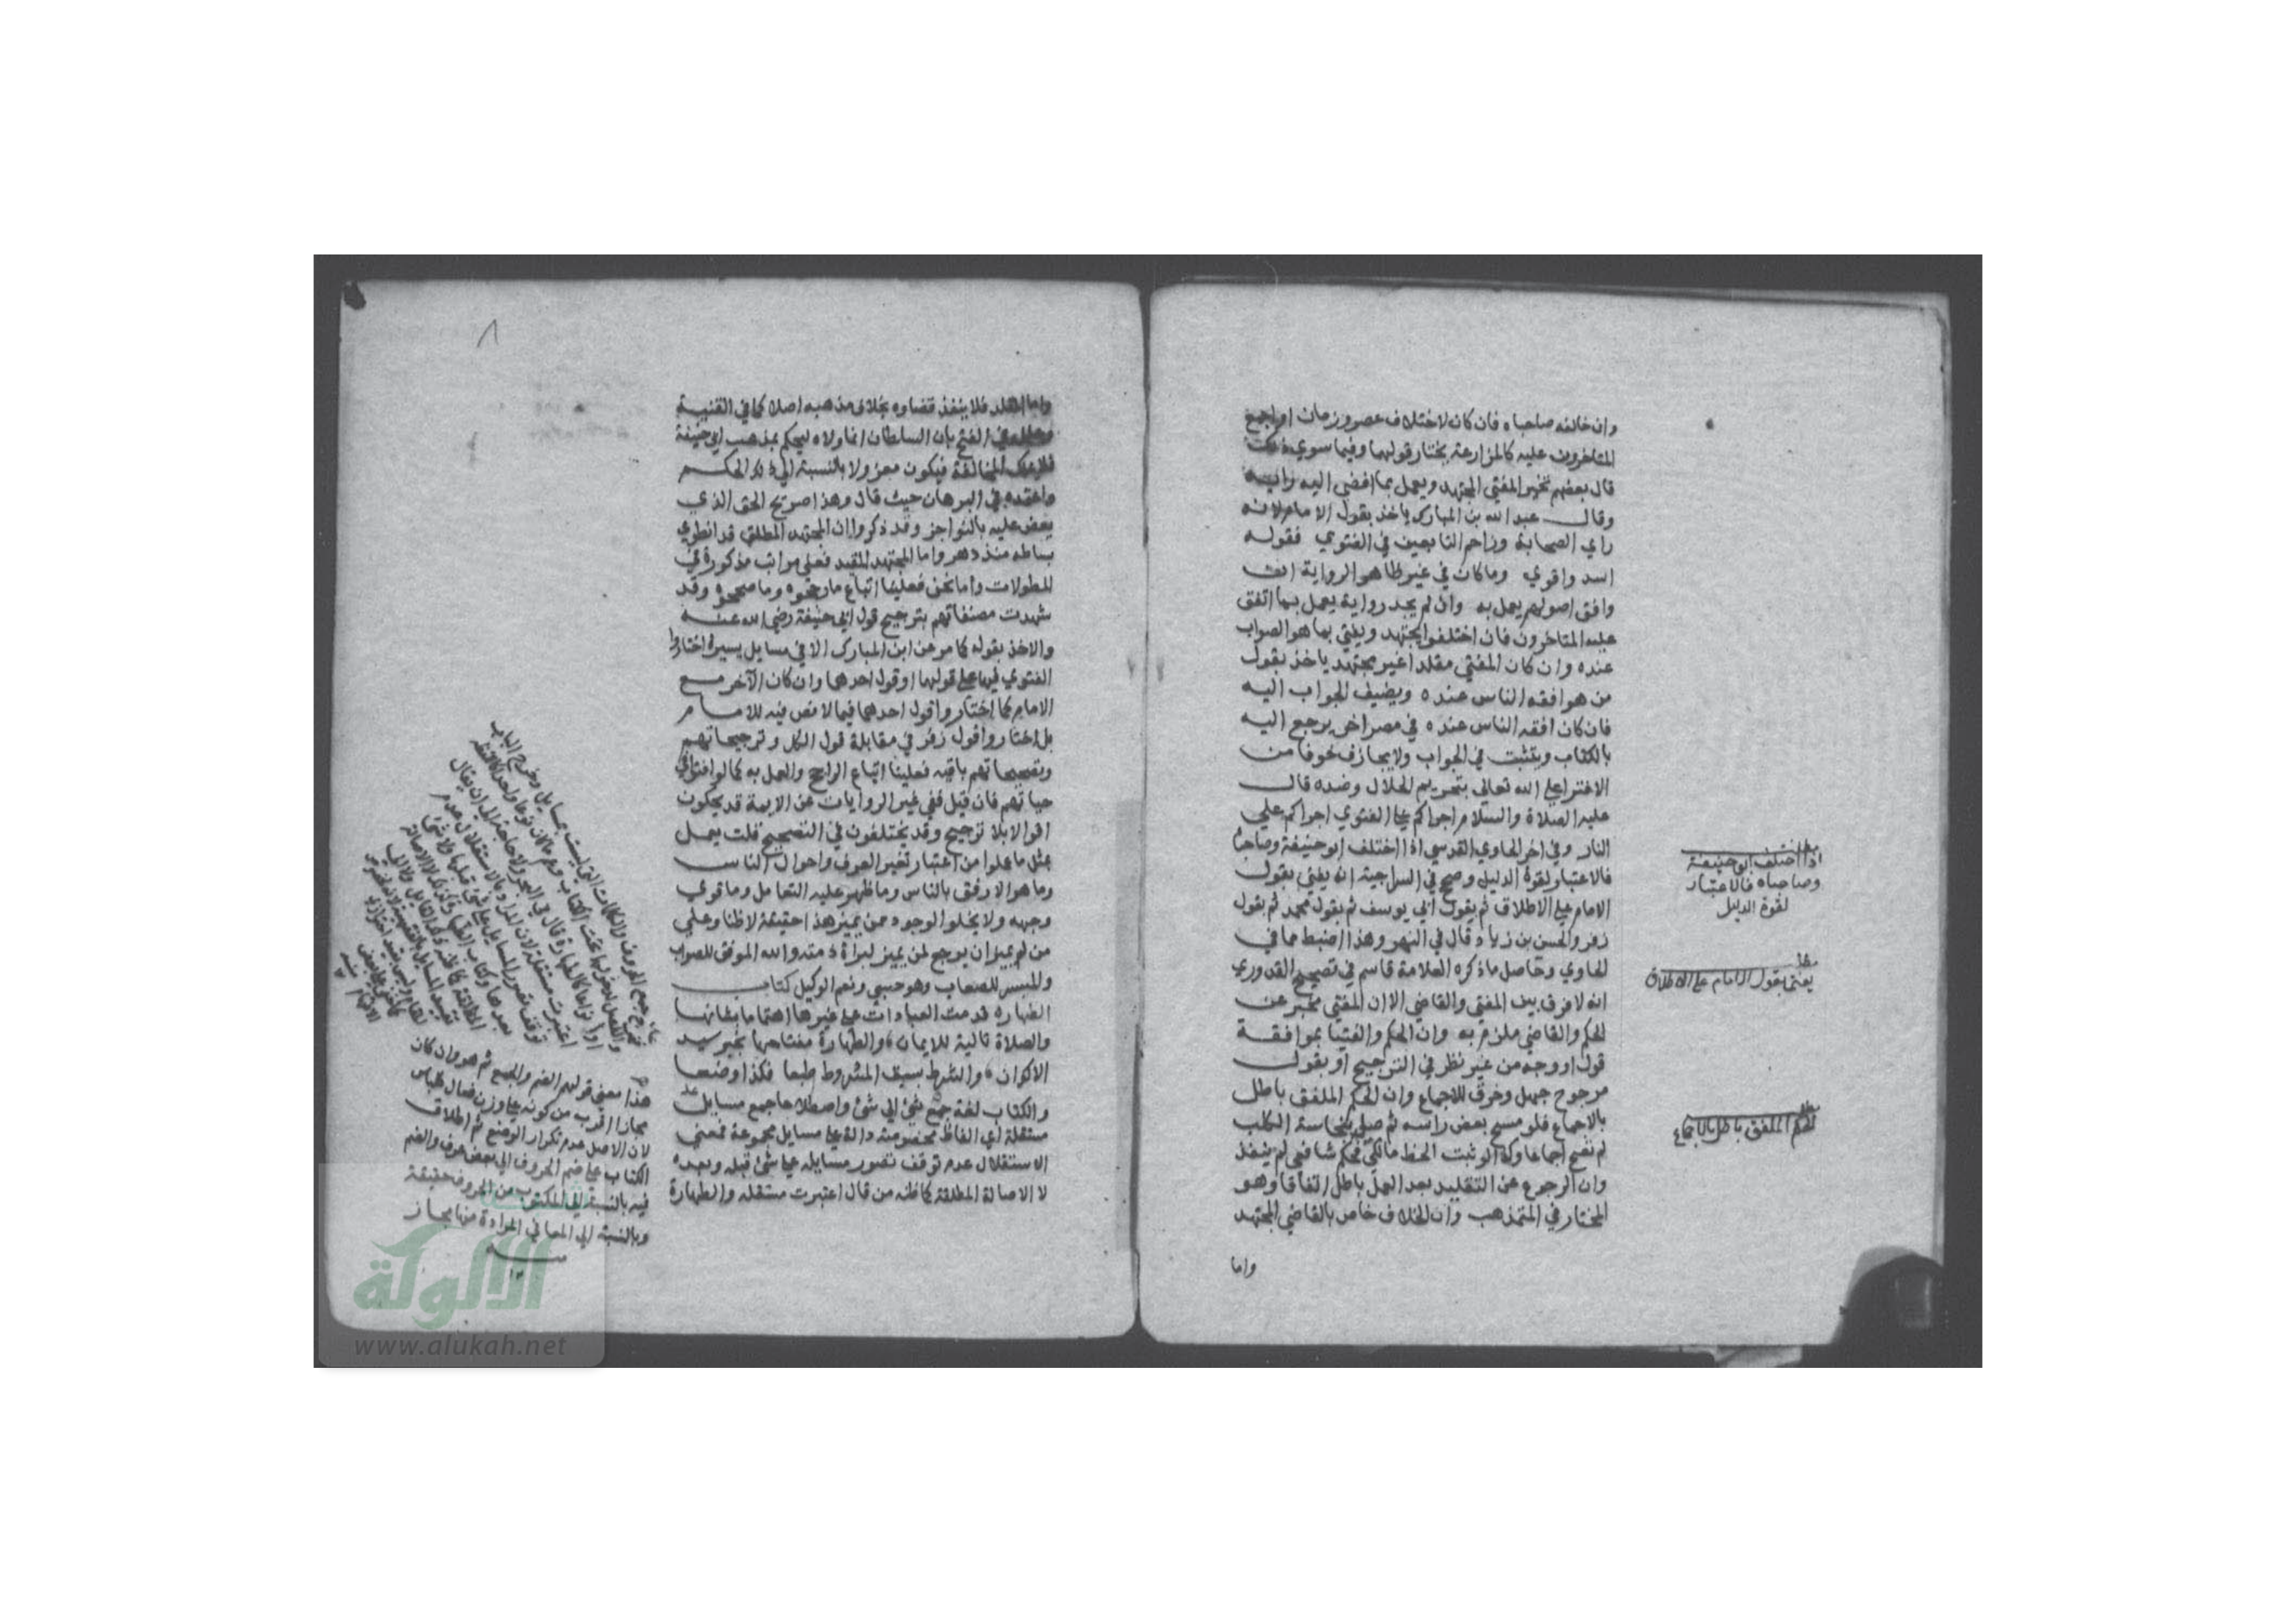 وان خالفه صاحباه فان كان لاختلاف عصر وزمان او اجمع
المتاخرون عليه كالمزارعة يختار قولهما وفيما سوي ذلك
قال بعضهم تخير المفتي المجتهد ويعمل بما افضي اليه رايه
وقال عبد الله بن المبارك ياخذ بقول الامام لانه
راي الصحابة وزاحم التابعين في الفتوي فقوله
اسد واقوي وما كان في غير ظاهر الرواية ان
وافق اصولهم يعمل به وان لم يجد رواية يعمل بما اتفق
عليه المتاخرون فان اختلفوا يجتهد ويفتي بما هو الصواب
عنده وان كان المفتي مقلدا غير مجتهد ياخذ بقول
من هو افقه الناس عنده ويضيف الجواب اليه
فان كان افقه الناس عنده في مصر اخر يرجع اليه
بالكتاب ويتثبت في الجواب ولا يجازف خوفا من
الافترا علي الله تعالي بتحريم الحلال وضده قال
عليه الصلاة والسلام اجراكم علي الفتوي اجراكم علي
النار وفي اخر الحاوي القدسي اذا اختلف ابو حنيفة وصاحباه
فالاعتبار لقوة الدليل وصح في السراجية انه يفتي بقول
الامام علي الاطلاق ثم بقول ابي يوسف ثم بقول محمد ثم بقول
زفر والحسن بن زياد قال في النهر وهذا اضبط مما في
الحاوي وحاصل ما ذكره العلامة قاسم في تصحيح القدوري
انه لا فرق بين المفتي والقاضي الا ان المفتي مخبر عن
الحكم والقاضي ملزم به وان الحكم والفتيا بموافقة
قول او وجه من غير نظر في الترجيح او بقول
مرجوح جهل وخرق للاجماع وان الحكم الملفق باطل
بالاجماع فلو مسح بعض راسه ثم صلي بنجاسة الكلب
لم تصح اجماعا وكذا لو ثبت الخط مالكي فحكم شافعي لم ينفذ
وان الرجوع عن التقليد بعد العمل باطل اتفاقا وهو
المختار في المتمذهب وان الخلاف خاص بالقاضي المجتهد
واما
مطلب
اذا اختلف ابو حنيفة
وصاحباه فالاعتبار
لقوة الدليل
مطلب
يفتي بقول الامام علي الاطلاق
مطلب
الحكم الملفق باطل بالاجماع
٨
واما المقلد فلا ينفذ قضاوه بخلاف مذهبه اصلا كما في القنية
في الفتح بان السلطان انما ولاه ليحكم بمذهب ابي حنيفة
فلا يملك المخالفة فيكون معزولا بالنسبة الي ذلك الحكم
واعتمده في البرهان حيث قال وهذا صريح الحق الذي
يعض عليه بالنواجز وقد ذكروا ان المجتهد المطلق قد انطوي
بساطه منذ دهر واما المجتهد المقيد فعلي مراتب مذكورة في
المطولات واما نحن فعلينا اتباع ما رجحوه وما صححوه وقد
شهدت مصنفاتهم بترجيح قول ابي حنيفة رضي الله عنه
والاخذ بقوله كما مر عن ابن المبارك الا في مسايل يسيرة اختاروا
الفتوي فيها علي قولهما او قول احدهما وان كان الآخر مع
الامام كما اختاروا قول احدهما فيما لا نص فيه للامام
بل اختاروا قول زفر في مقابلة قول الكل وترجيحاتهم
وتصحيحاتهم باقيه فعلينا اتباع الراجح والعمل به كما لو افتوا في
حياتهم فان قيل ففي غير الروايات عن الايمة قد يحكون
اقوالا بلا ترجيح وقد يختلفون في التصحيح قلت يعمل
بمثل ما عملوا من اعتبار تغير العرف واحوال الناس
وما هو الارفق بالناس وما ظهر عليه التعامل وما قوي
وجهه ولا يخلو الوجود ممن يميز هذا حقيقة لا ظنا وعلي
من لم يميز ان يرجع لمن يميز لبراة ذمته والله الموفق للصواب
والميسر للصعاب وهو حسبي ونعم الوكيل كتاب
الطهارة قدمت العبادات علي غيرها اهتماما بشانها
والصلاة تالية للايمان والطهارة مفتاحها بخبر سيد
الاكوان والشرط يسبق المشروط طبعا فكذا وضعا
والكتاب لغة جمع شئ الي شئ واصطلاحا جمع مسايل
مستقلة اي الفاظ مخصوصة دالة علي مسايل مجموعة فمعني
الاستقلال عدم توقف تصور مسايله علي شئ قبله وبعده
لا الاصالة المطلقة كما ظنه من قال اعتبرت مستقله والطهارة
هذا معني قولهم الضم والجمع ثم هو وان كان
مجازا اقرب من كونه علي وزن فعال كلباس
لان الاصل عدم تكرار الوضع ثم اطلاق
الكتاب علي ضم الحروف الي بعض عرف والضم
فيه بالنسبة الي المكتوب من الحروف حقيقة
وبالنسبة الي المعاني المرادة منها مجاز
منه
١٢
شبكة
الألوكة
www.alukah.net